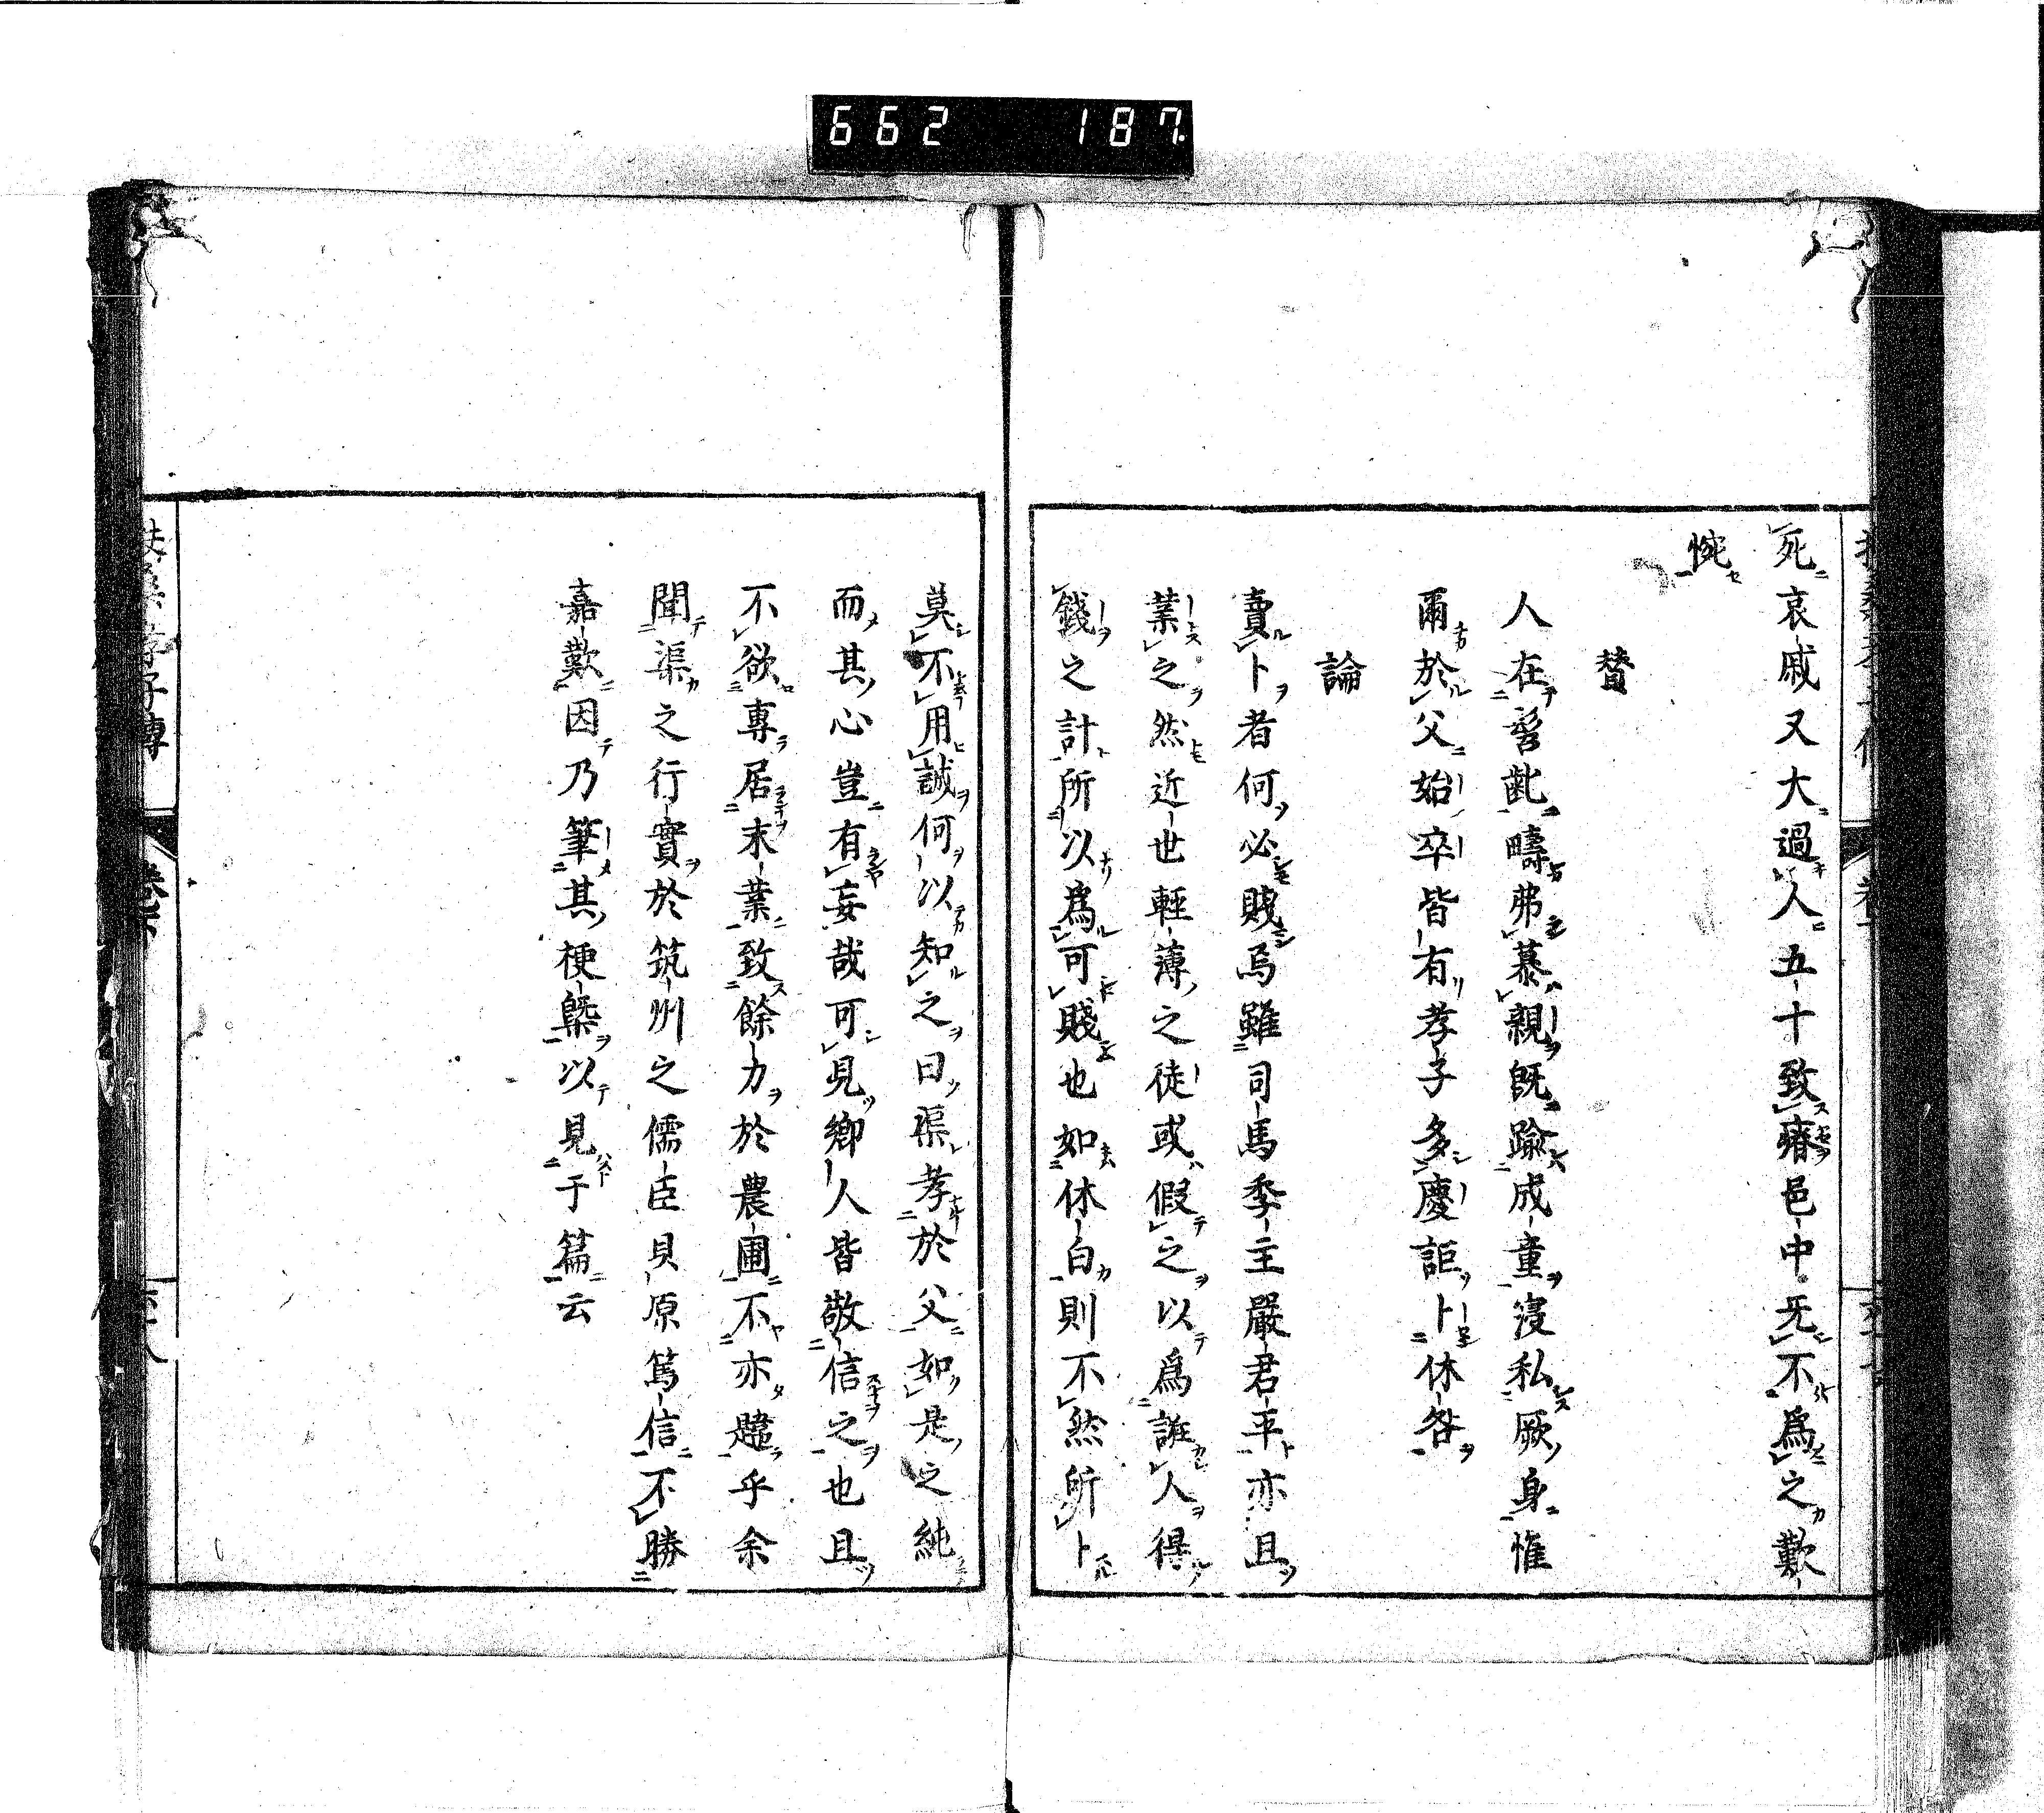 662 187
死哀戚又大過人五十致瘠邑中旡不爲之歎
惋
賛
人在髫齔疇弗慕親既踰成童寖私厥身惟
爾於父始卒皆有孝子多慶詎卜休咎
論
賣卜者何必賤焉雖司馬季主嚴君平亦且
業之然近世輕薄之徒或假之以爲誑人得
錢之計所以爲可賤也如休白則不然所卜
莫不用誠何以知之曰渠孝於父如是之純
而其心豈有妄哉可見鄉人皆敬信之也且
不欲專居末業致餘力於農圃不亦韙乎余
聞渠之行實於筑州之儒臣貝原篤信不勝
嘉歎因乃筆其梗槩以見于篇云
孝子傳